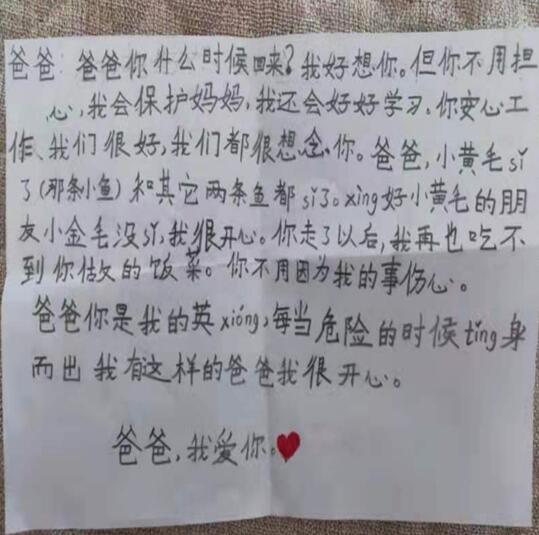 爸爸：爸爸你什么时候回来？我好想你。但你不用担
心，我会保护妈妈，我还会好好学习。你安心工
作、我们很好，我们都很想念你。爸爸，小黄毛sǐ
了(那条小鱼)和其它两条鱼都sǐ了。xìng好小黄毛的朋
友小金毛没sǐ，我很开心。你走了以后，我再也吃不
到你做的饭菜。你不用因为我的事伤心。
爸爸你是我的英xióng，每当危险的时候tǐng身
而出 我有这样的爸爸我很开心。
爸爸，我爱你。